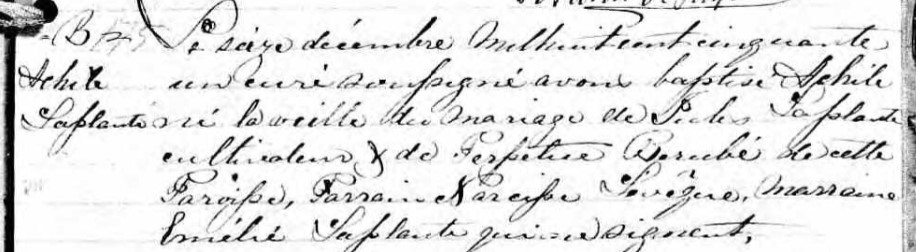 B 
Achile
Laplante
Le seize décembre Mil huit cent cinquante
un curé soussigné avons baptisé Achile
né la veille du mariage de Jules Laplante
cultivateur & de Perpétue Berubé de cette
Paroisse, Parrain Narcisse Levêque, Marraine
Emélie Laplante qui ne signent,